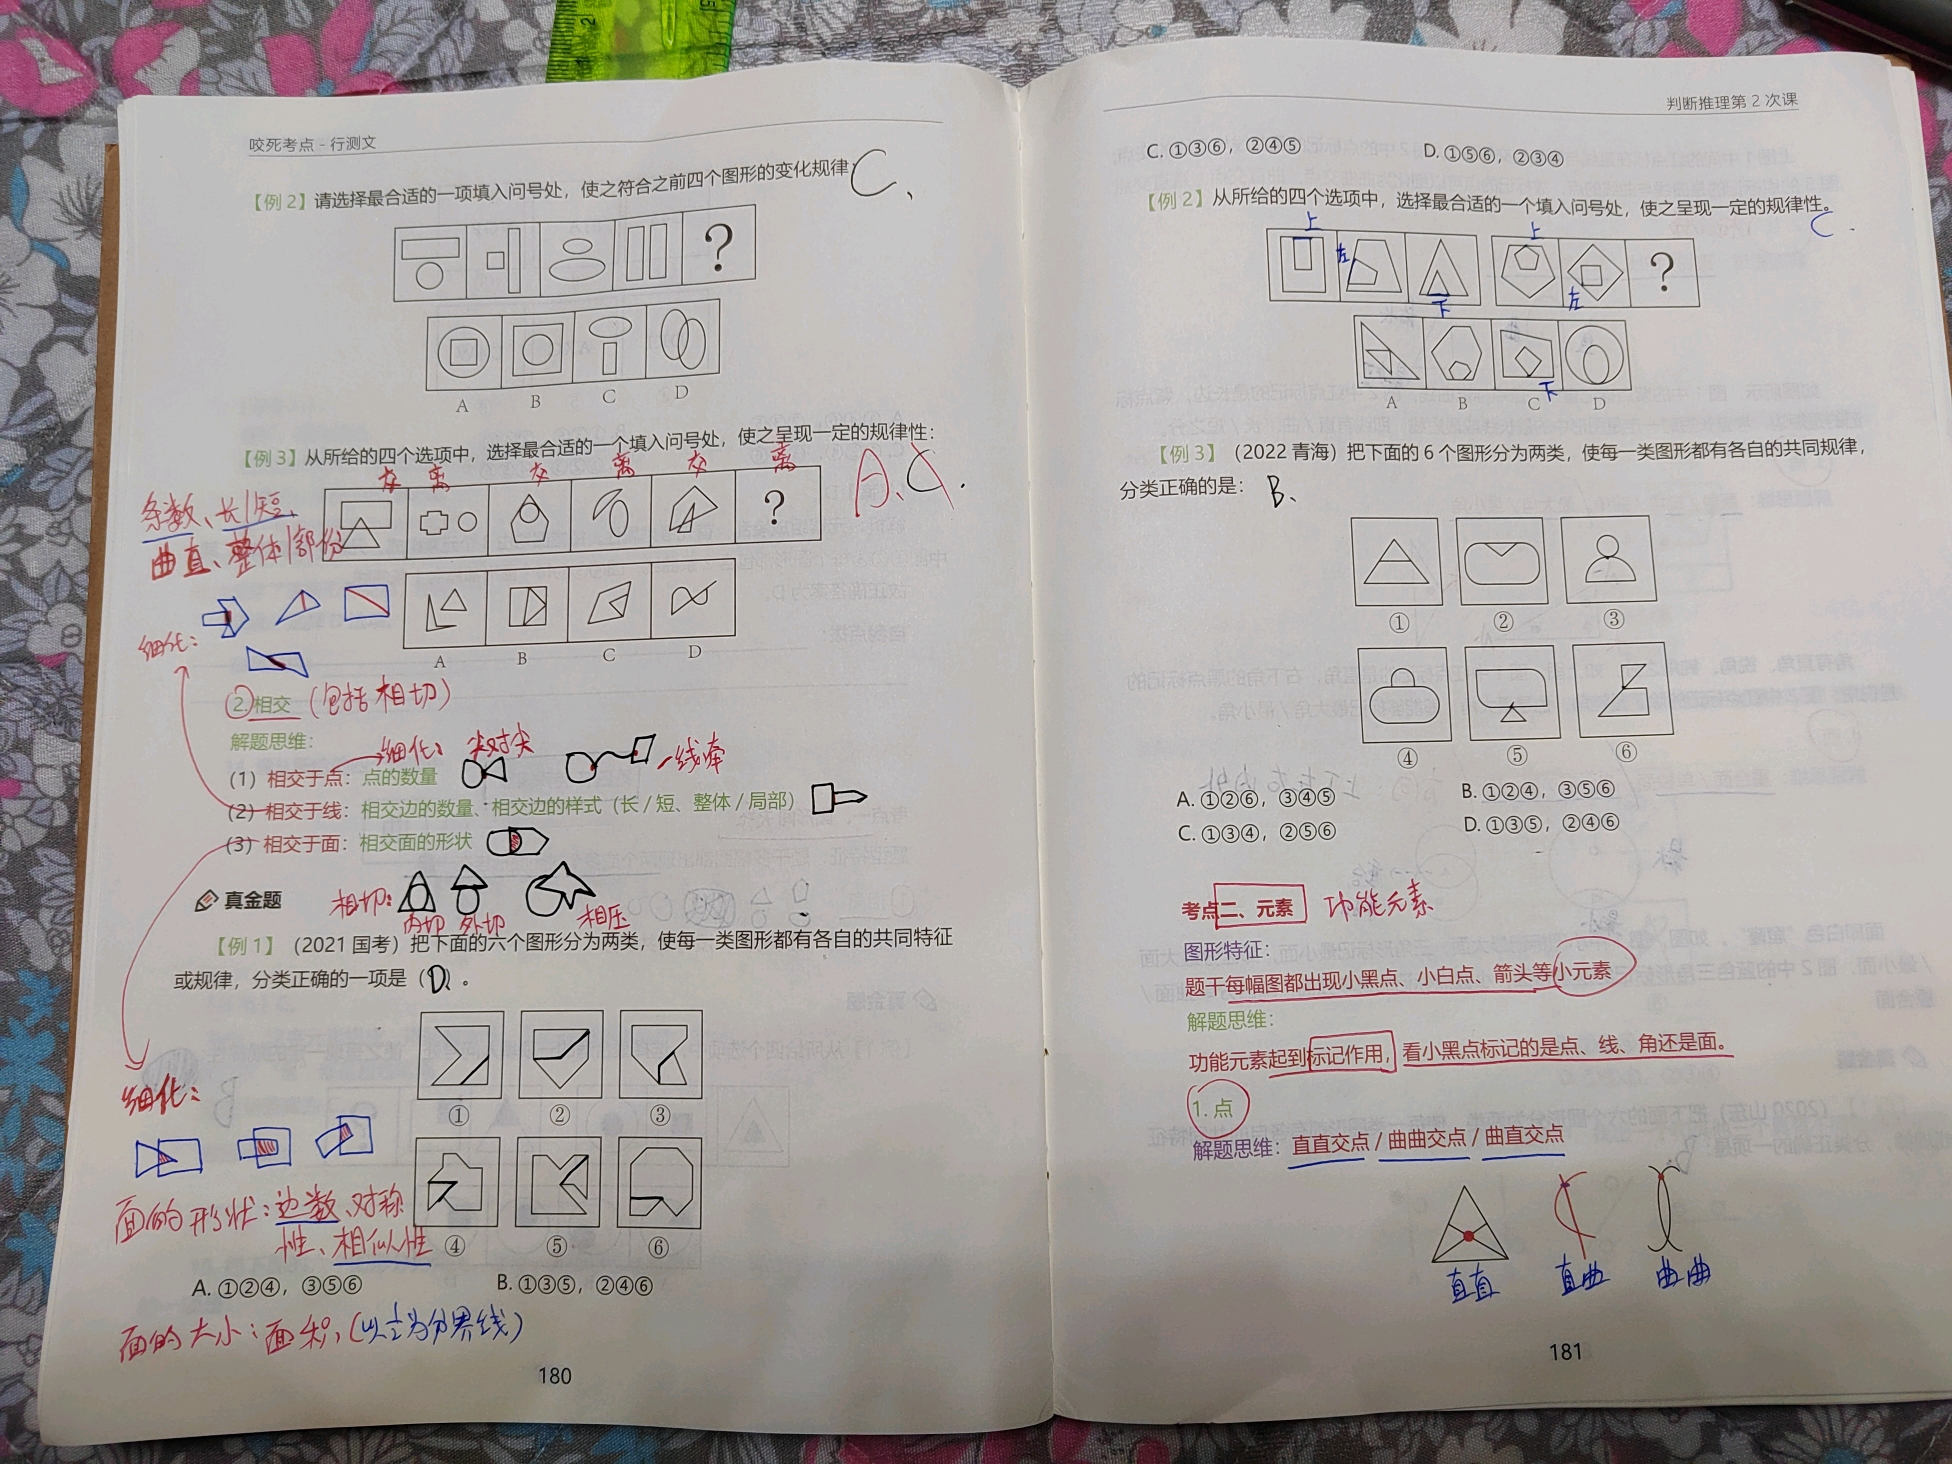 咬死考点 - 行测文
【例 2】请选择最合适的一项填入问号处，使之符合之前四个图形的变化规律：
C、
?
A B C D
【例 3】从所给的四个选项中，选择最合适的一个填入问号处，使之呈现一定的规律性：
A、C.
交 离 交 离 交 离
?
条数、长|短、
曲直、整体|部份
细化：
A B C D
2.相交（包括相切）
解题思维：
细化：尖对尖 一线牵
（1）相交于点：点的数量
（2）相交于线：相交边的数量、相交边的样式（长 / 短、整体 / 局部）
（3）相交于面：相交面的形状
真金题
相切：内切 外切 相压
【例 1】（2021 国考）把下面的六个图形分为两类，使每一类图形都有各自的共同特征
或规律，分类正确的一项是（D）。
① ② ③
细化：
面的形状：边数、对称
性、相似性
④ ⑤ ⑥
A. ①②④，③⑤⑥ B. ①③⑤，②④⑥
面的大小：面积，（以½为分界线）
180
判断推理第 2 次课
C. ①③⑥，②④⑤ D. ①⑤⑥，②③④
【例 2】从所给的四个选项中，选择最合适的一个填入问号处，使之呈现一定的规律性。
C.
上 左 下 上 左
?
下
A B C D
【例 3】（2022 青海）把下面的 6 个图形分为两类，使每一类图形都有各自的共同规律，
分类正确的是： B、
① ② ③
④ ⑤ ⑥
A. ①②⑥，③④⑤ B. ①②④，③⑤⑥
C. ①③④，②⑤⑥ D. ①③⑤，②④⑥
考点二、元素 功能元素
图形特征：
题干每幅图都出现小黑点、小白点、箭头等小元素
解题思维：
功能元素起到标记作用，看小黑点标记的是点、线、角还是面。
1. 点
解题思维：直直交点 / 曲曲交点 / 曲直交点
直直 直曲 曲曲
181